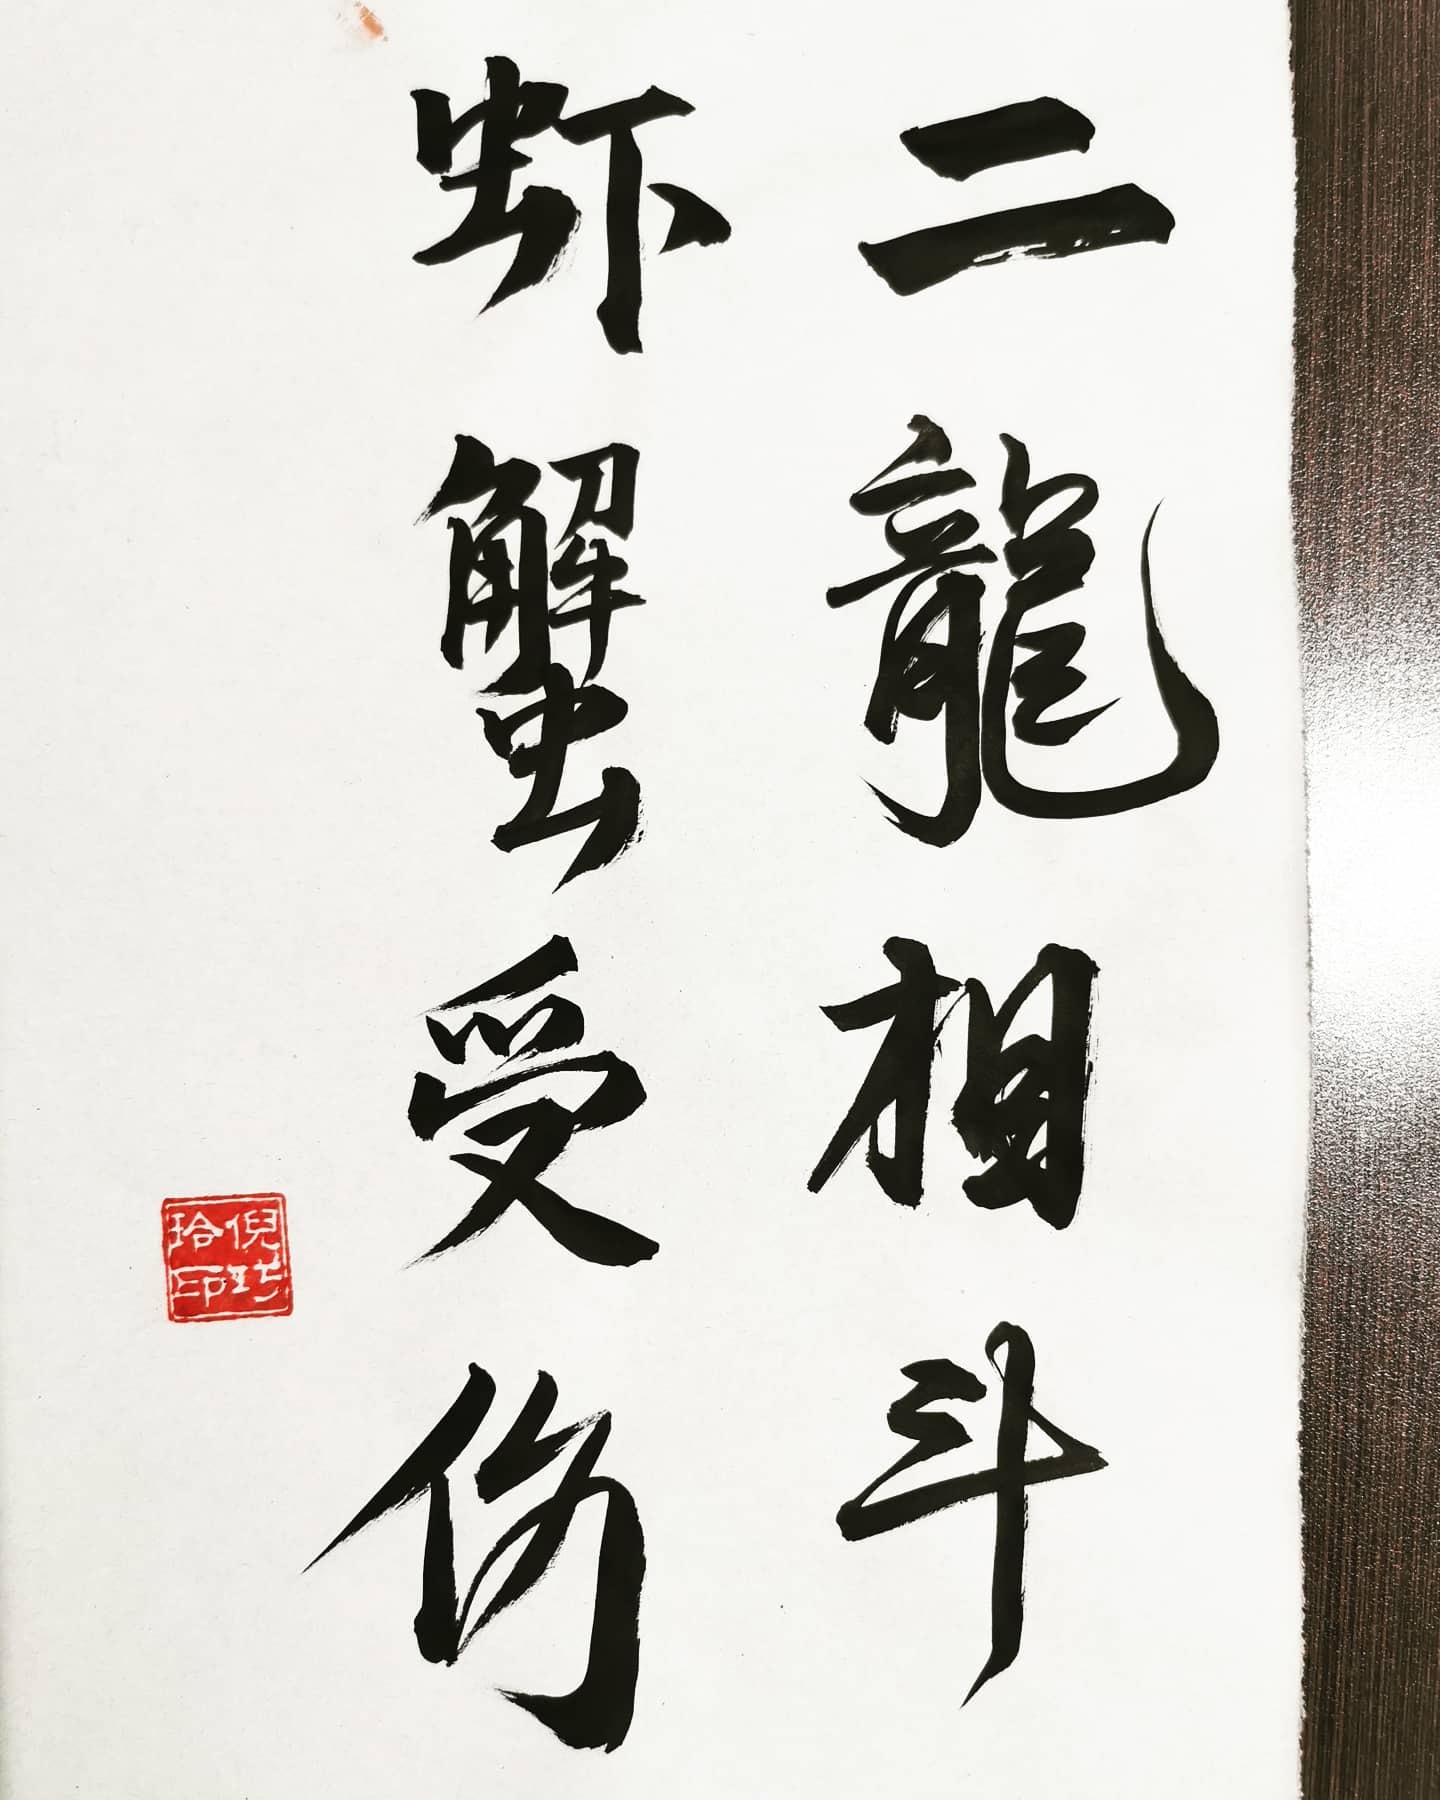 二龍相斗
虾蟹受伤
倪巧
玲印